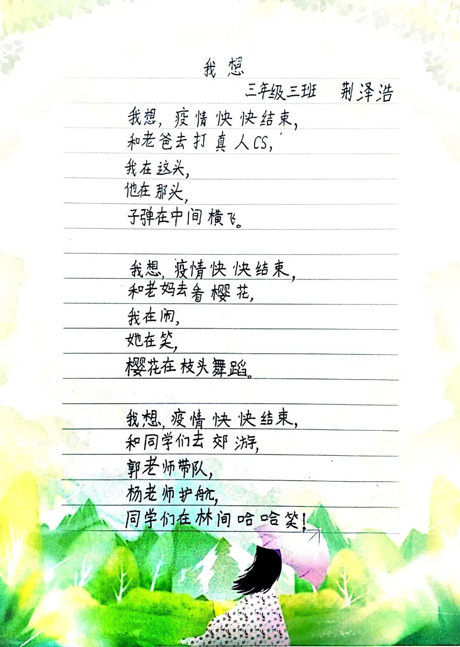 我想
三年级三班 荆泽浩
我想，疫情快快结束，
和老爸去打真人CS，
我在这头，
他在那头，
子弹在中间横飞。
我想，疫情快快结束，
和老妈去看樱花，
我在闹，
她在笑，
樱花在枝头舞蹈。
我想，疫情快快结束，
和同学们去郊游，
郭老师带队，
杨老师护航，
同学们在林间哈哈笑！